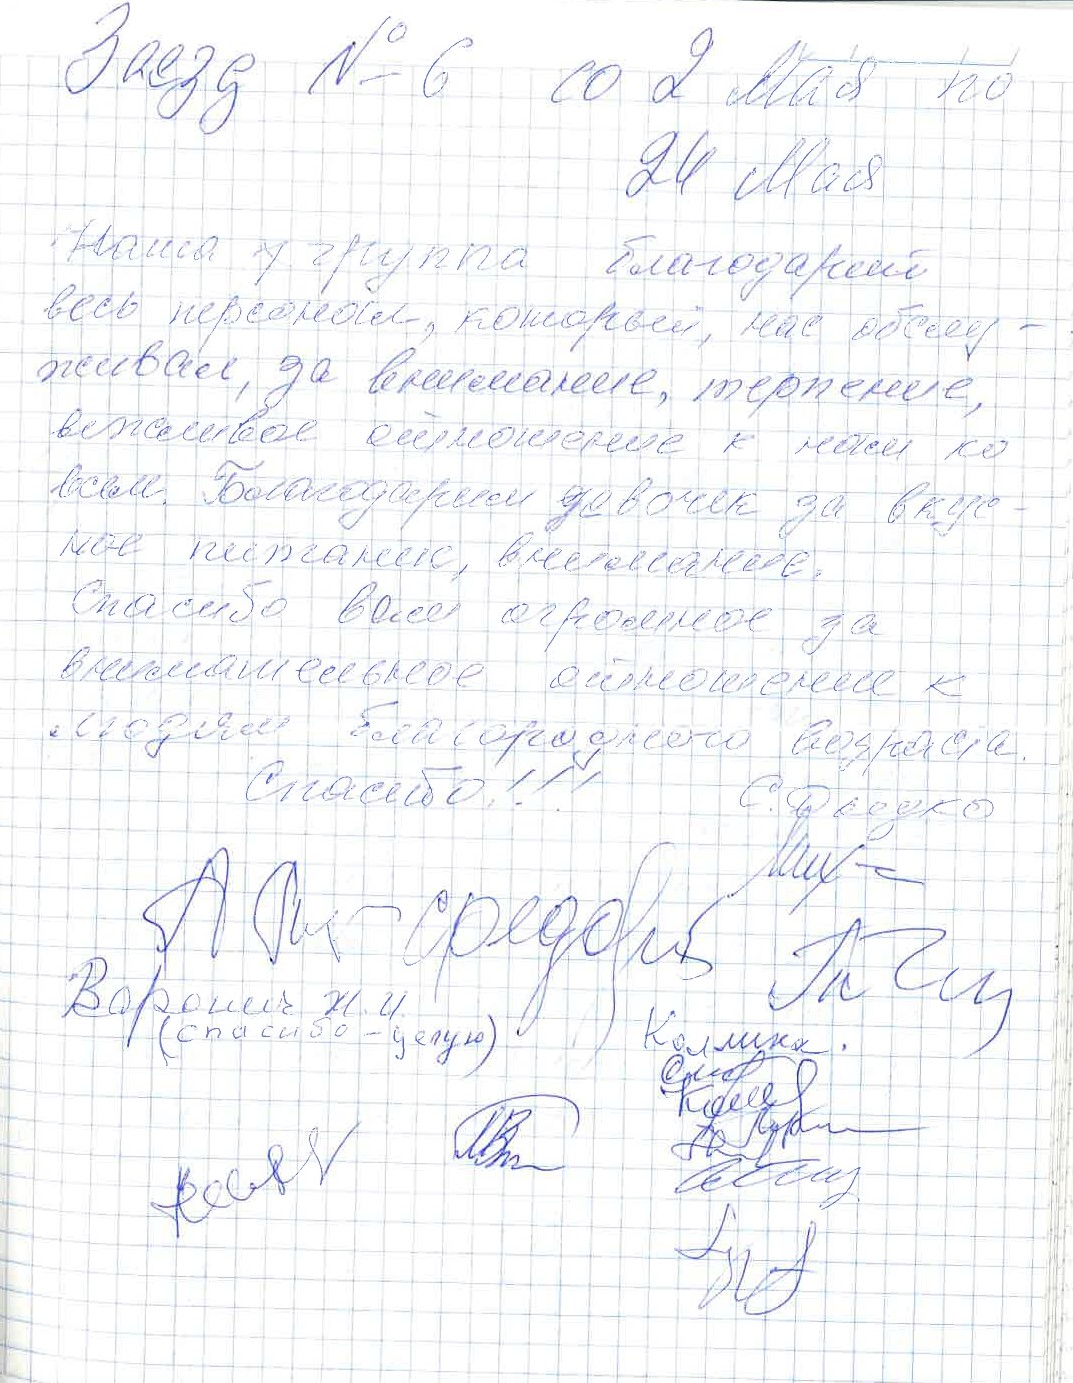 Заезд № 6 со 2 Мая по
24 Мая
Наша группа благодарит
весь персонал, который, нас обслу-
живал, за внимание, терпение,
вежливое отношение к нам ко
всем. Благодарим девочек за вкус-
ное питание, внимание.
Спасибо вам огромное за
внимательное отношение к
людям благородного возраста.
Спасибо!!!
Воронич Ж.И.
(спасибо - целую)